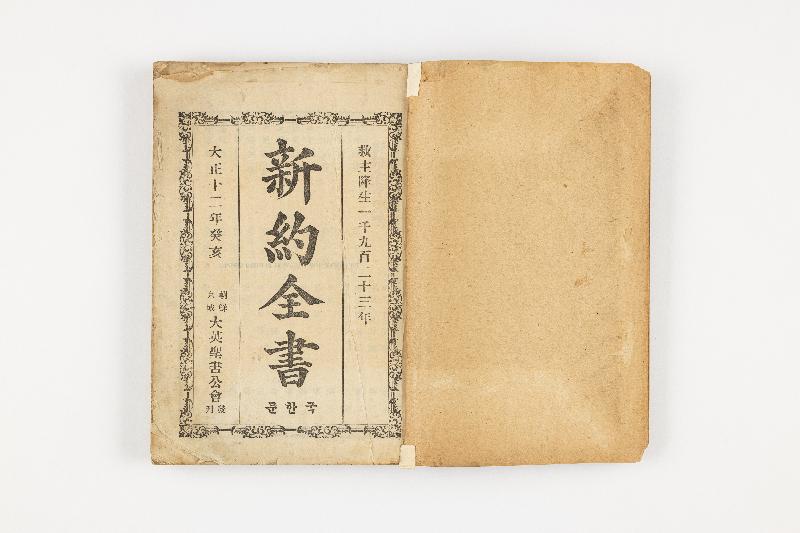 救主降生一千九百二十三年
新約全書
국한문
大正十二年癸亥
朝鮮
京城
大英聖書公會
發刊